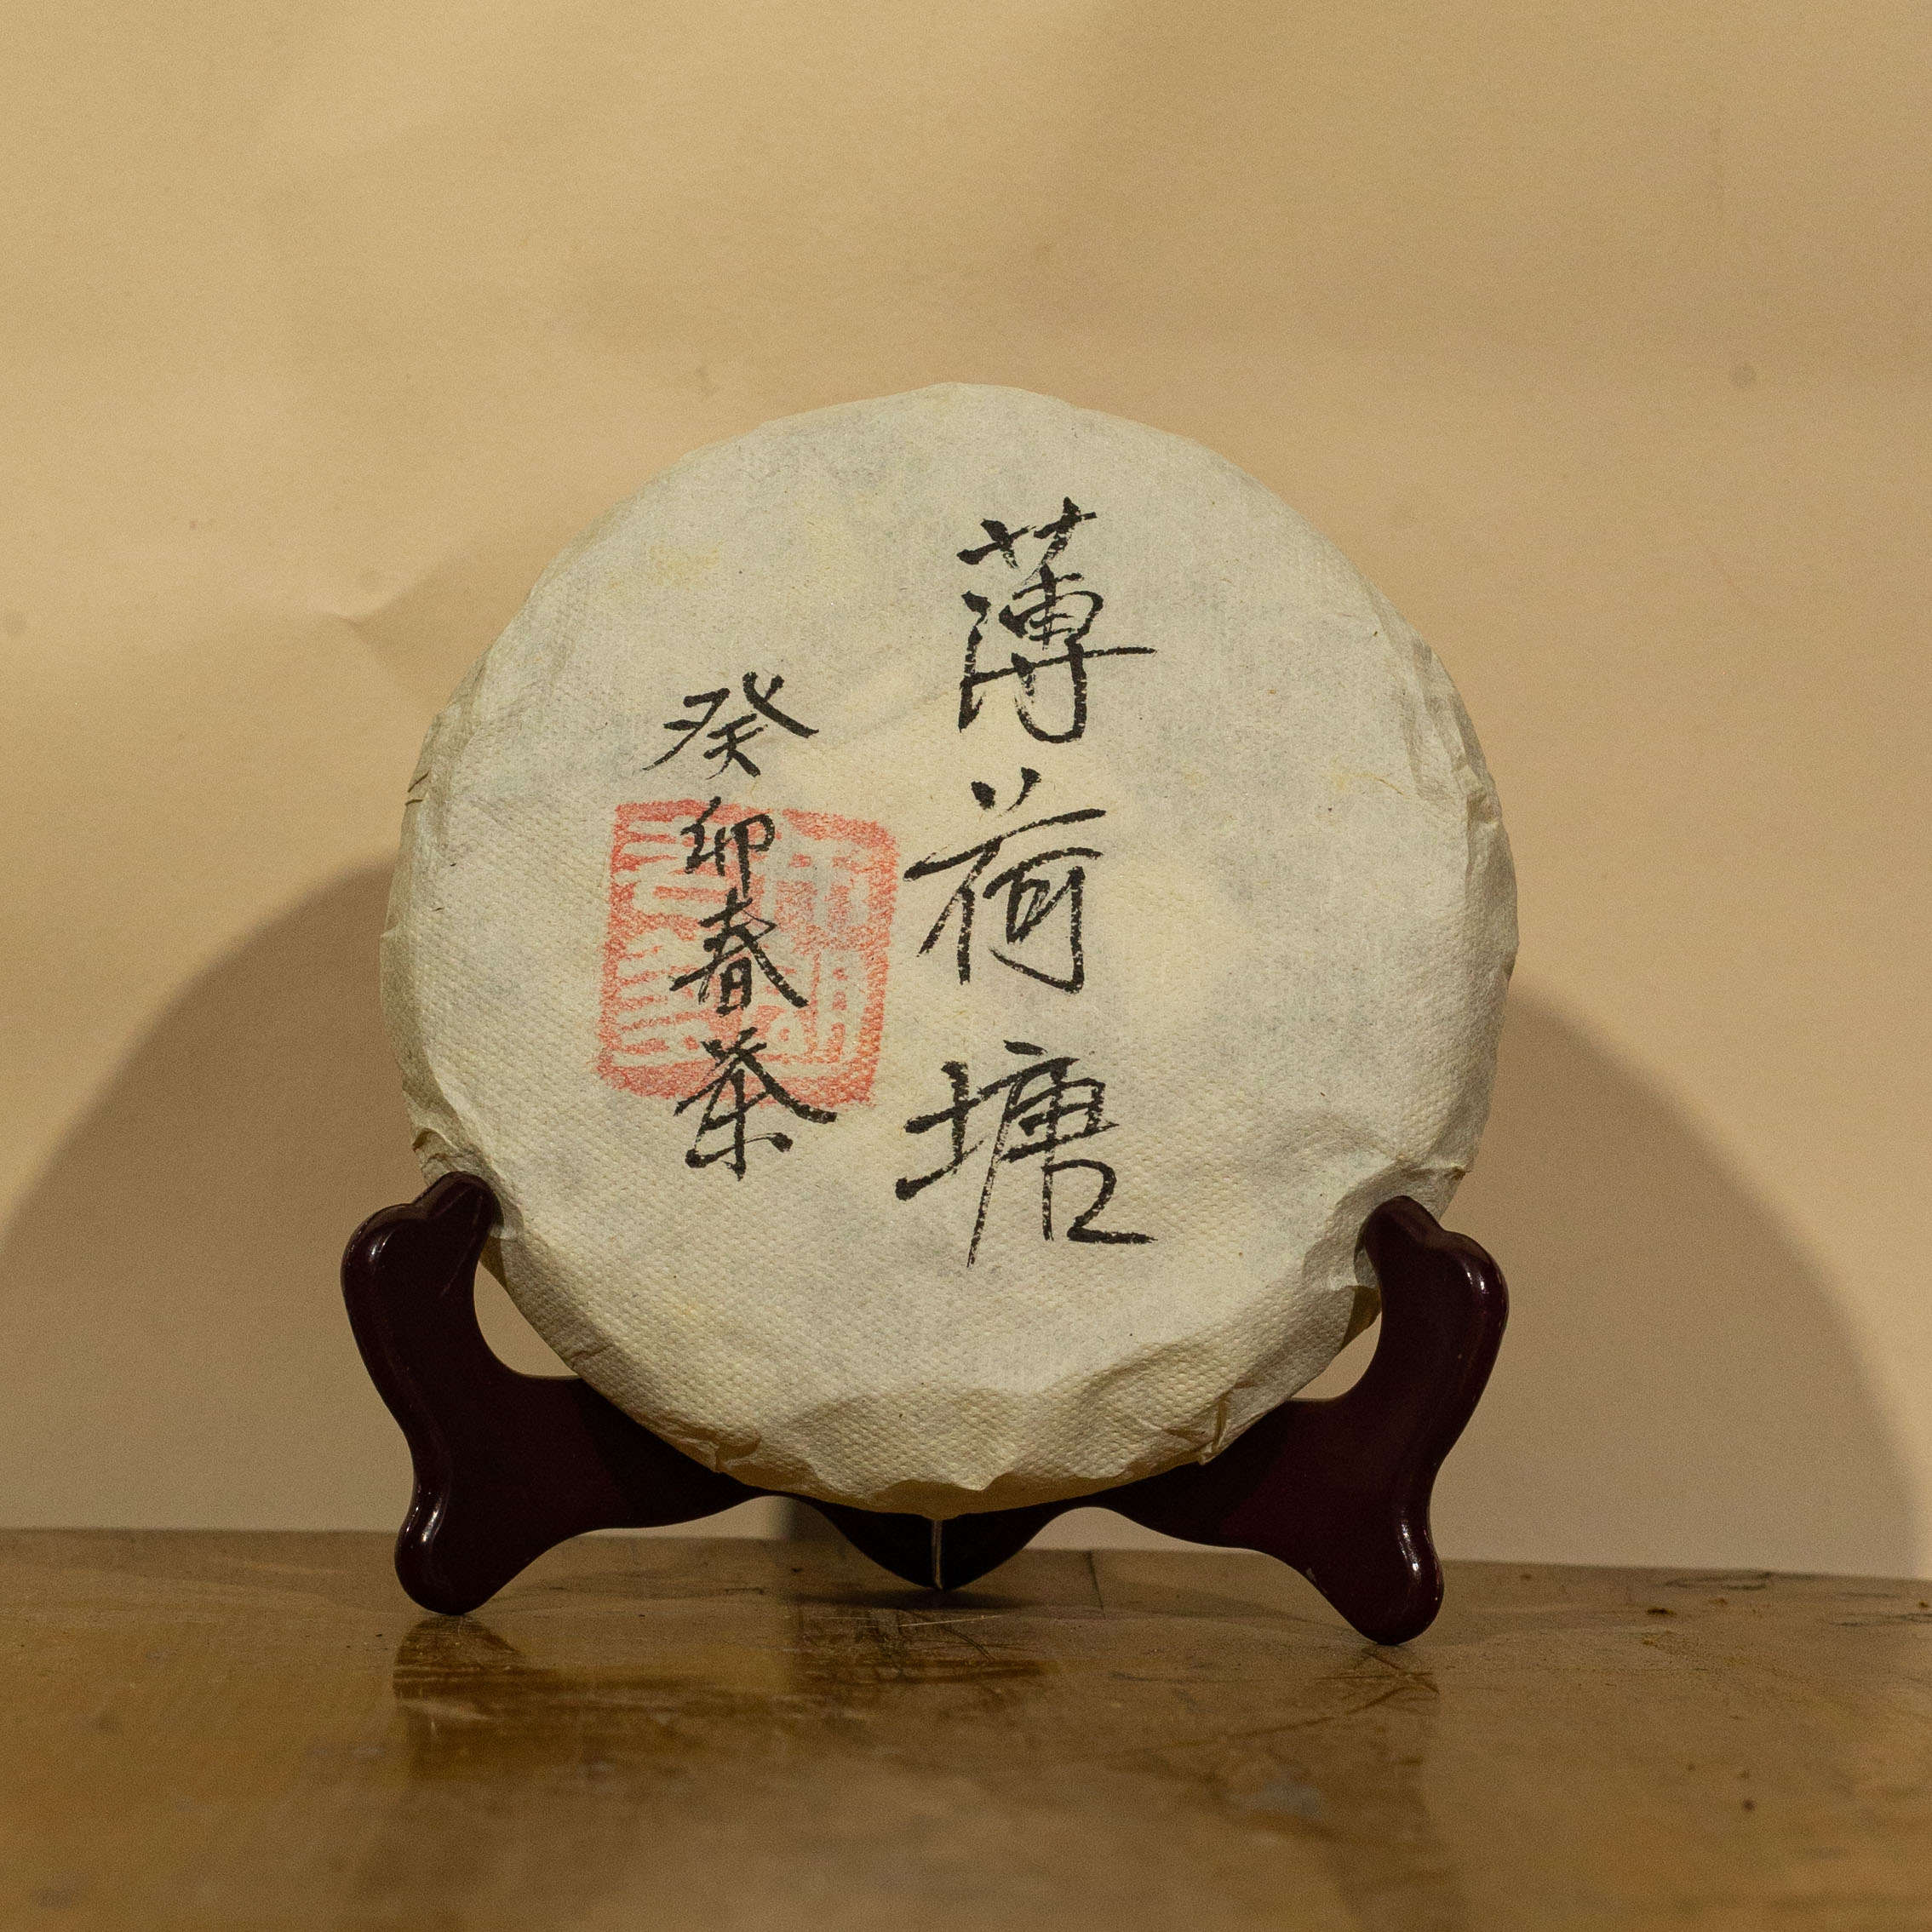 薄荷塘
癸卯春茶